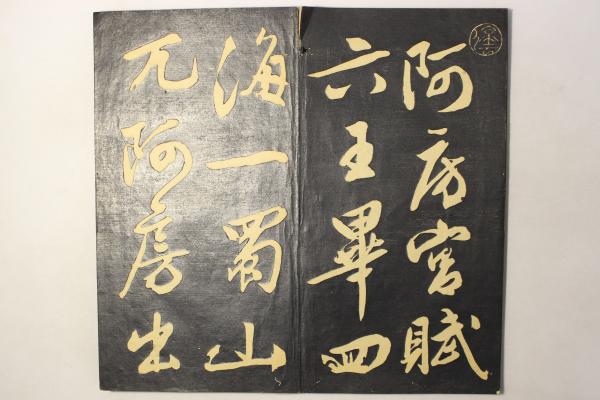 阿房宫賦
六王畢四
海一蜀山
兀阿房出